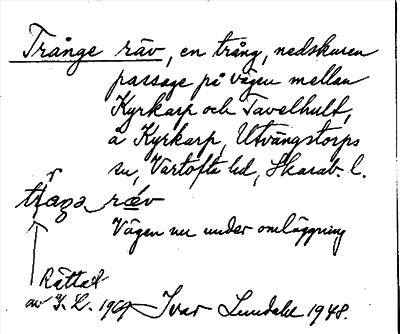 Trånge räv, en trång, nedskuren
passage på vägen mellan
Kyrkarp och Tavelhult,
å Kyrkarp, Utvängstorps
sn, Vartofta hd, Skarab. l.
tråŋa rǽv
Vägen nu under omläggning
Rättat
av I. L. 1969
Ivar Lundahl 1948.